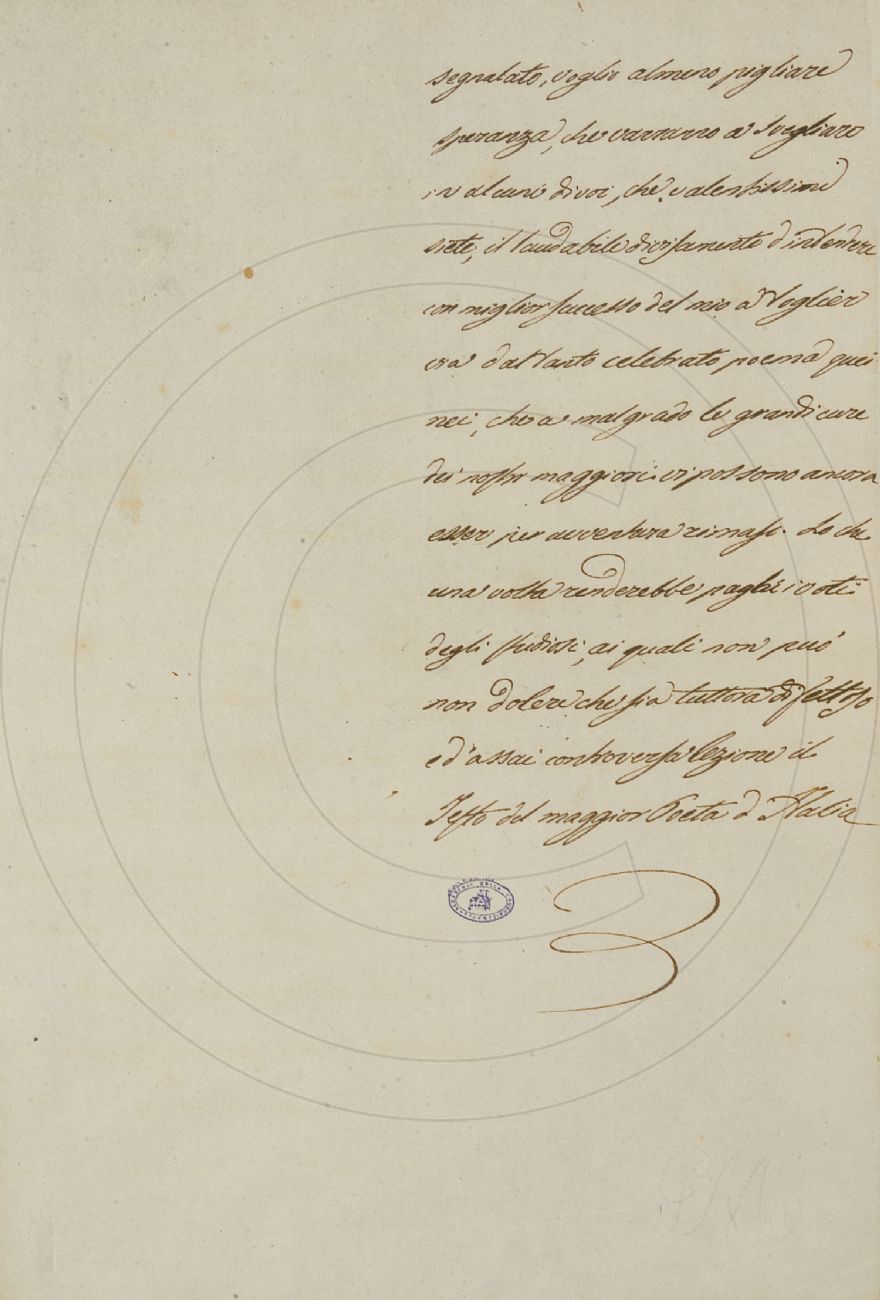 segnalato, voglio almeno pigliare
speranza, che varranno a svegliare
in alcuno di voi, che valentissimi
siete, il laudabile divisamento d'intendere
con miglior successo del mio a toglier
via dal tanto celebrato poema quei
nei, che a malgrado le grandi cure
dei nostri maggiori vi possono ancora
esser per avventura rimasi. Lo che
una volta renderebbe paghi i voti
degli studiosi, ai quali non può
non dolere che sia tuttora difettoso
e d'assai controversa lezione il
Testo del maggior Poeta d'Italia